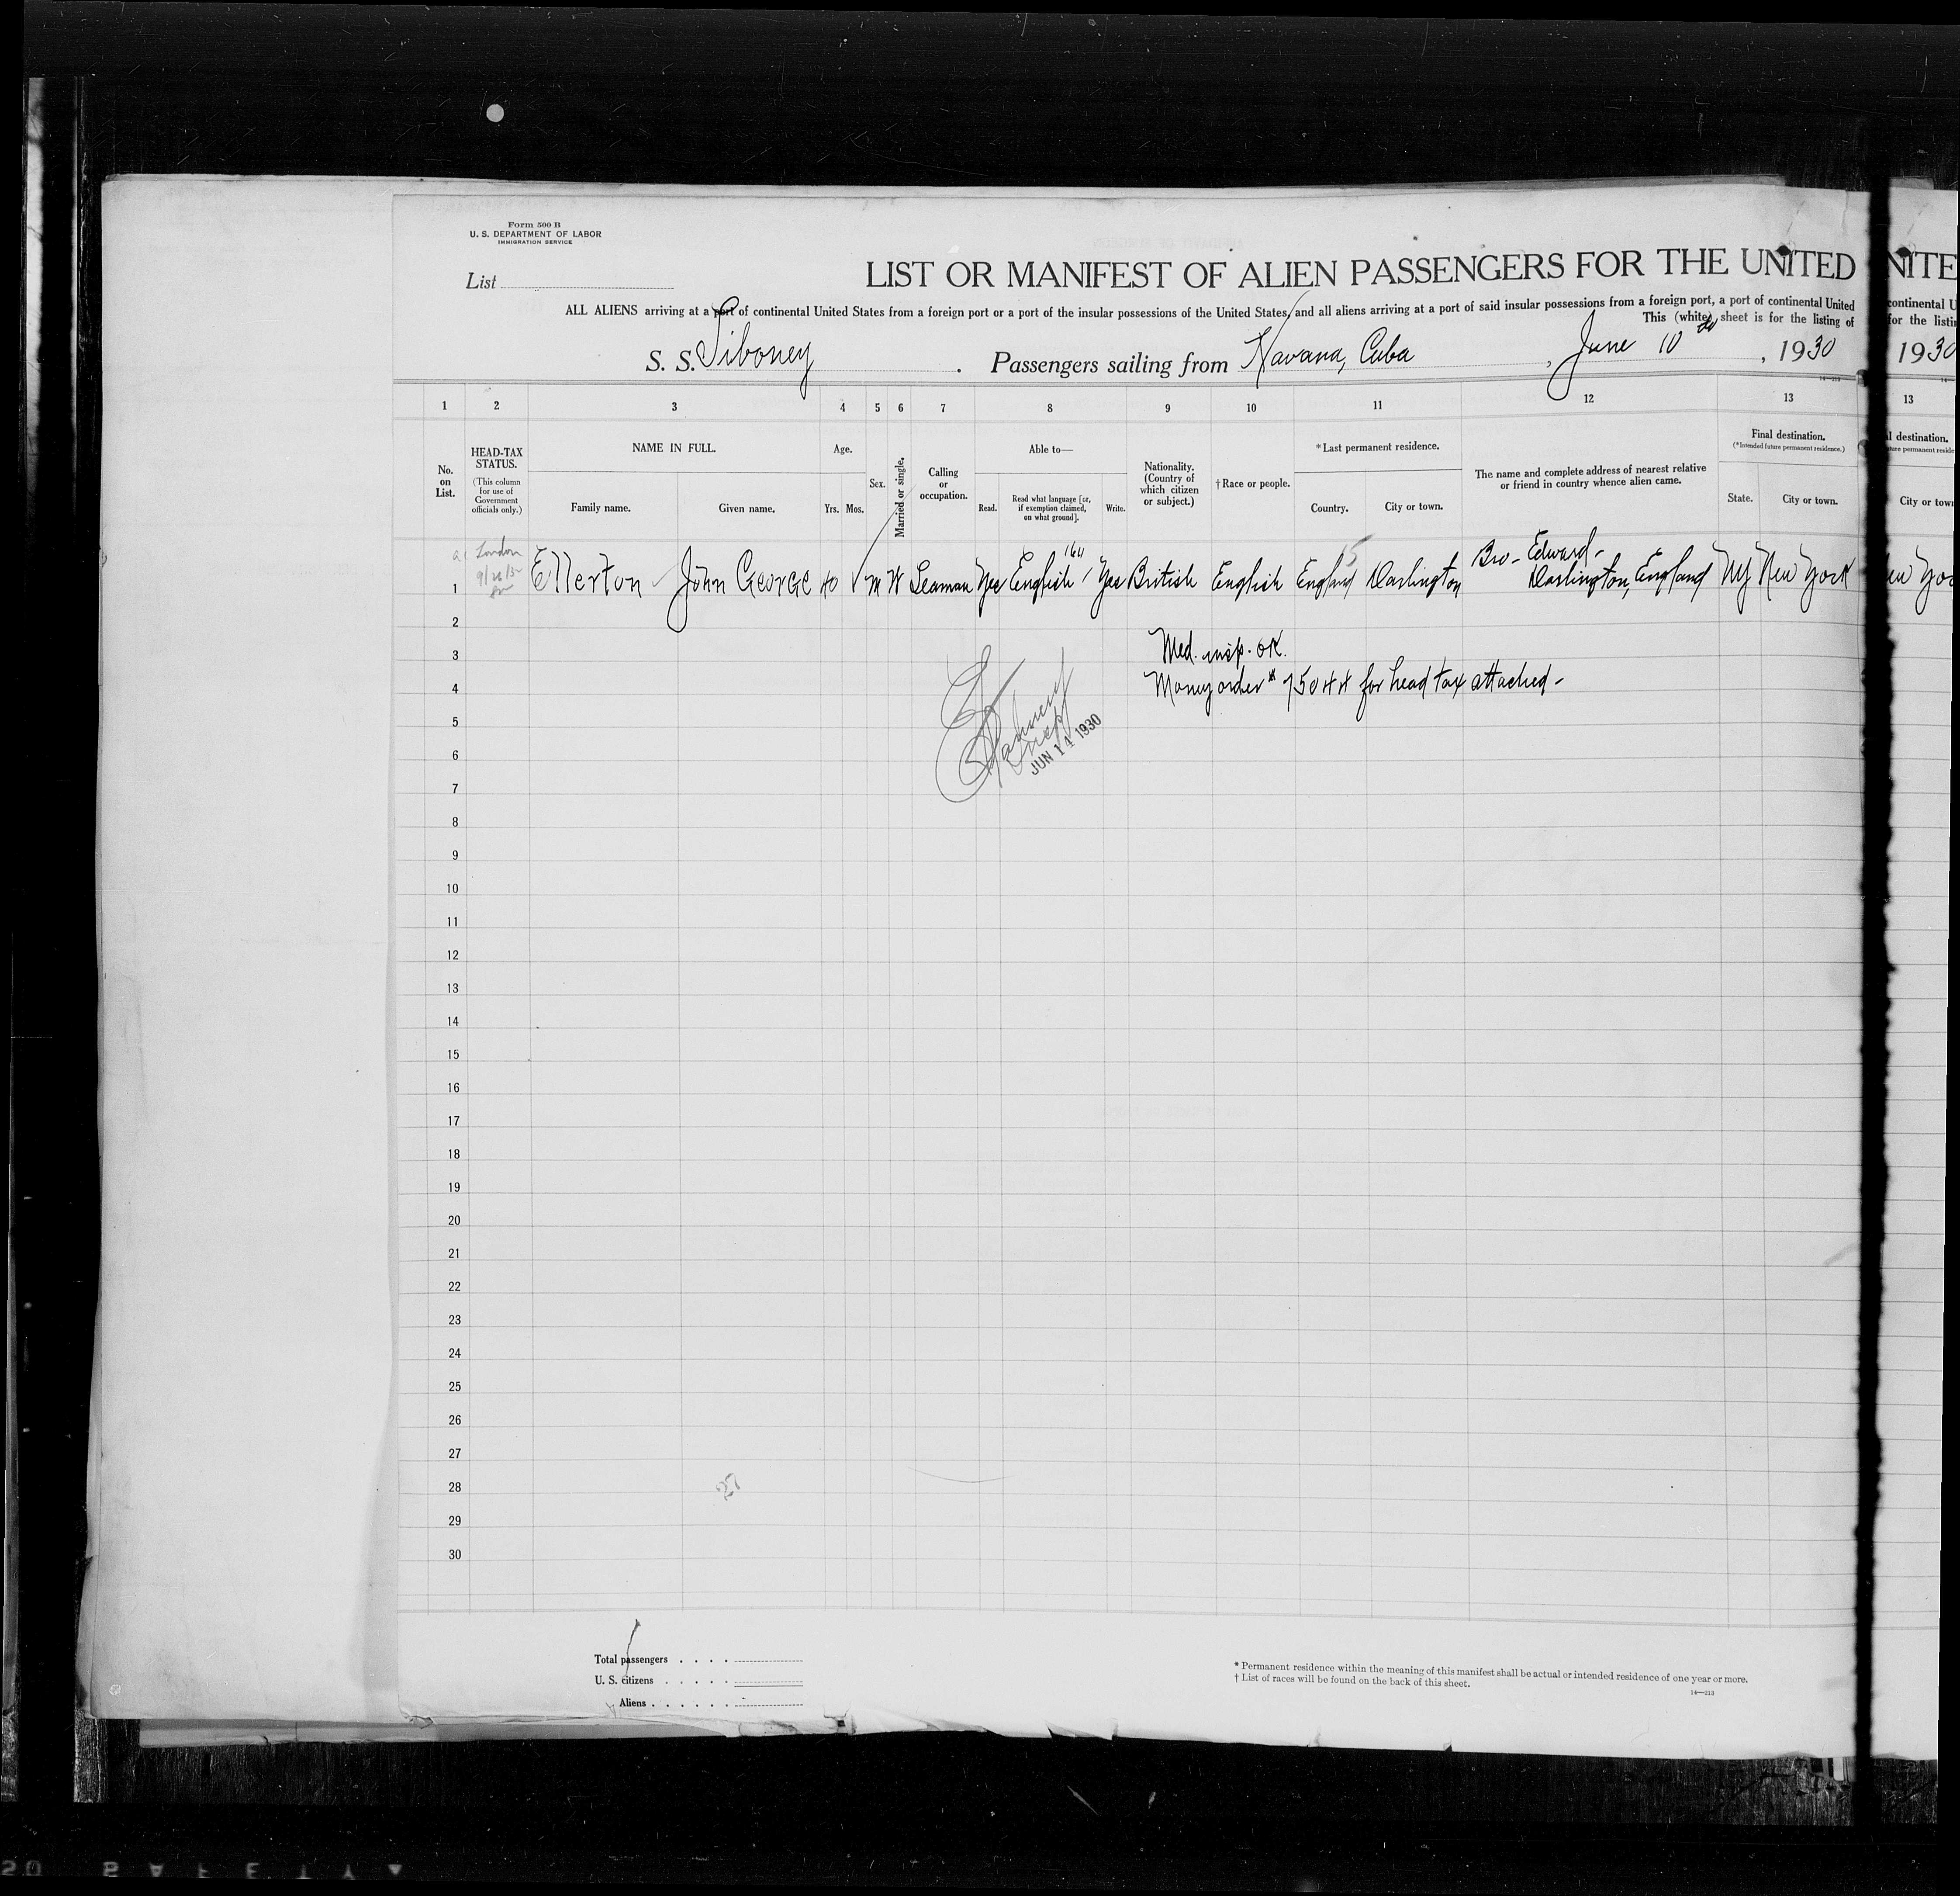 Form 500 B
U. S. DEPARTMENT OF LABOR
IMMIGRATION SERVICE
List
LIST OR MANIFEST OF ALIEN PASSENGERS FOR THE UNITED
ALL ALIENS arriving at a port of continental United States from a foreign port or a port of the insular possessions of the United States, and all aliens arriving at a port of said insular possessions from a foreign port, a port of continental United
This (white) sheet is for the listing of
S. S. Siboney . Passengers sailing from Havana, Cuba , June 10th , 1930
1 2 3 4 5 6 7 8 9 10 11 12 13
No. on List.
HEAD-TAX STATUS.
(This column for use of Government officials only.)
NAME IN FULL.
Family name. Given name.
Age.
Yrs. Mos.
Sex.
Married or single.
Calling or occupation.
Able to—
Read. Read what language [or, if exemption claimed, on what ground]. Write.
Nationality. (Country of which citizen or subject.)
† Race or people.
* Last permanent residence.
Country. City or town.
The name and complete address of nearest relative or friend in country whence alien came.
Final destination.
(* Intended future permanent residence.)
State. City or town.
London
1 Ellerton John George 40 M W Seaman Yes English Yes British English England Darlington Bro- Edward- Darlington, England NY New York
2
3 Med. insp. OK.
4 Money order # 75044 for head tax attached -
5
JUN 14 1930
6
7
8
9
10
11
12
13
14
15
16
17
18
19
20
21
22
23
24
25
26
27
28
27
29
30
Total passengers
U. S. citizens
Aliens
* Permanent residence within the meaning of this manifest shall be actual or intended residence of one year or more.
† List of races will be found on the back of this sheet.
14—213
NITE
continental U
for the listin
1930
13
l destination.
City or town
ew Yor